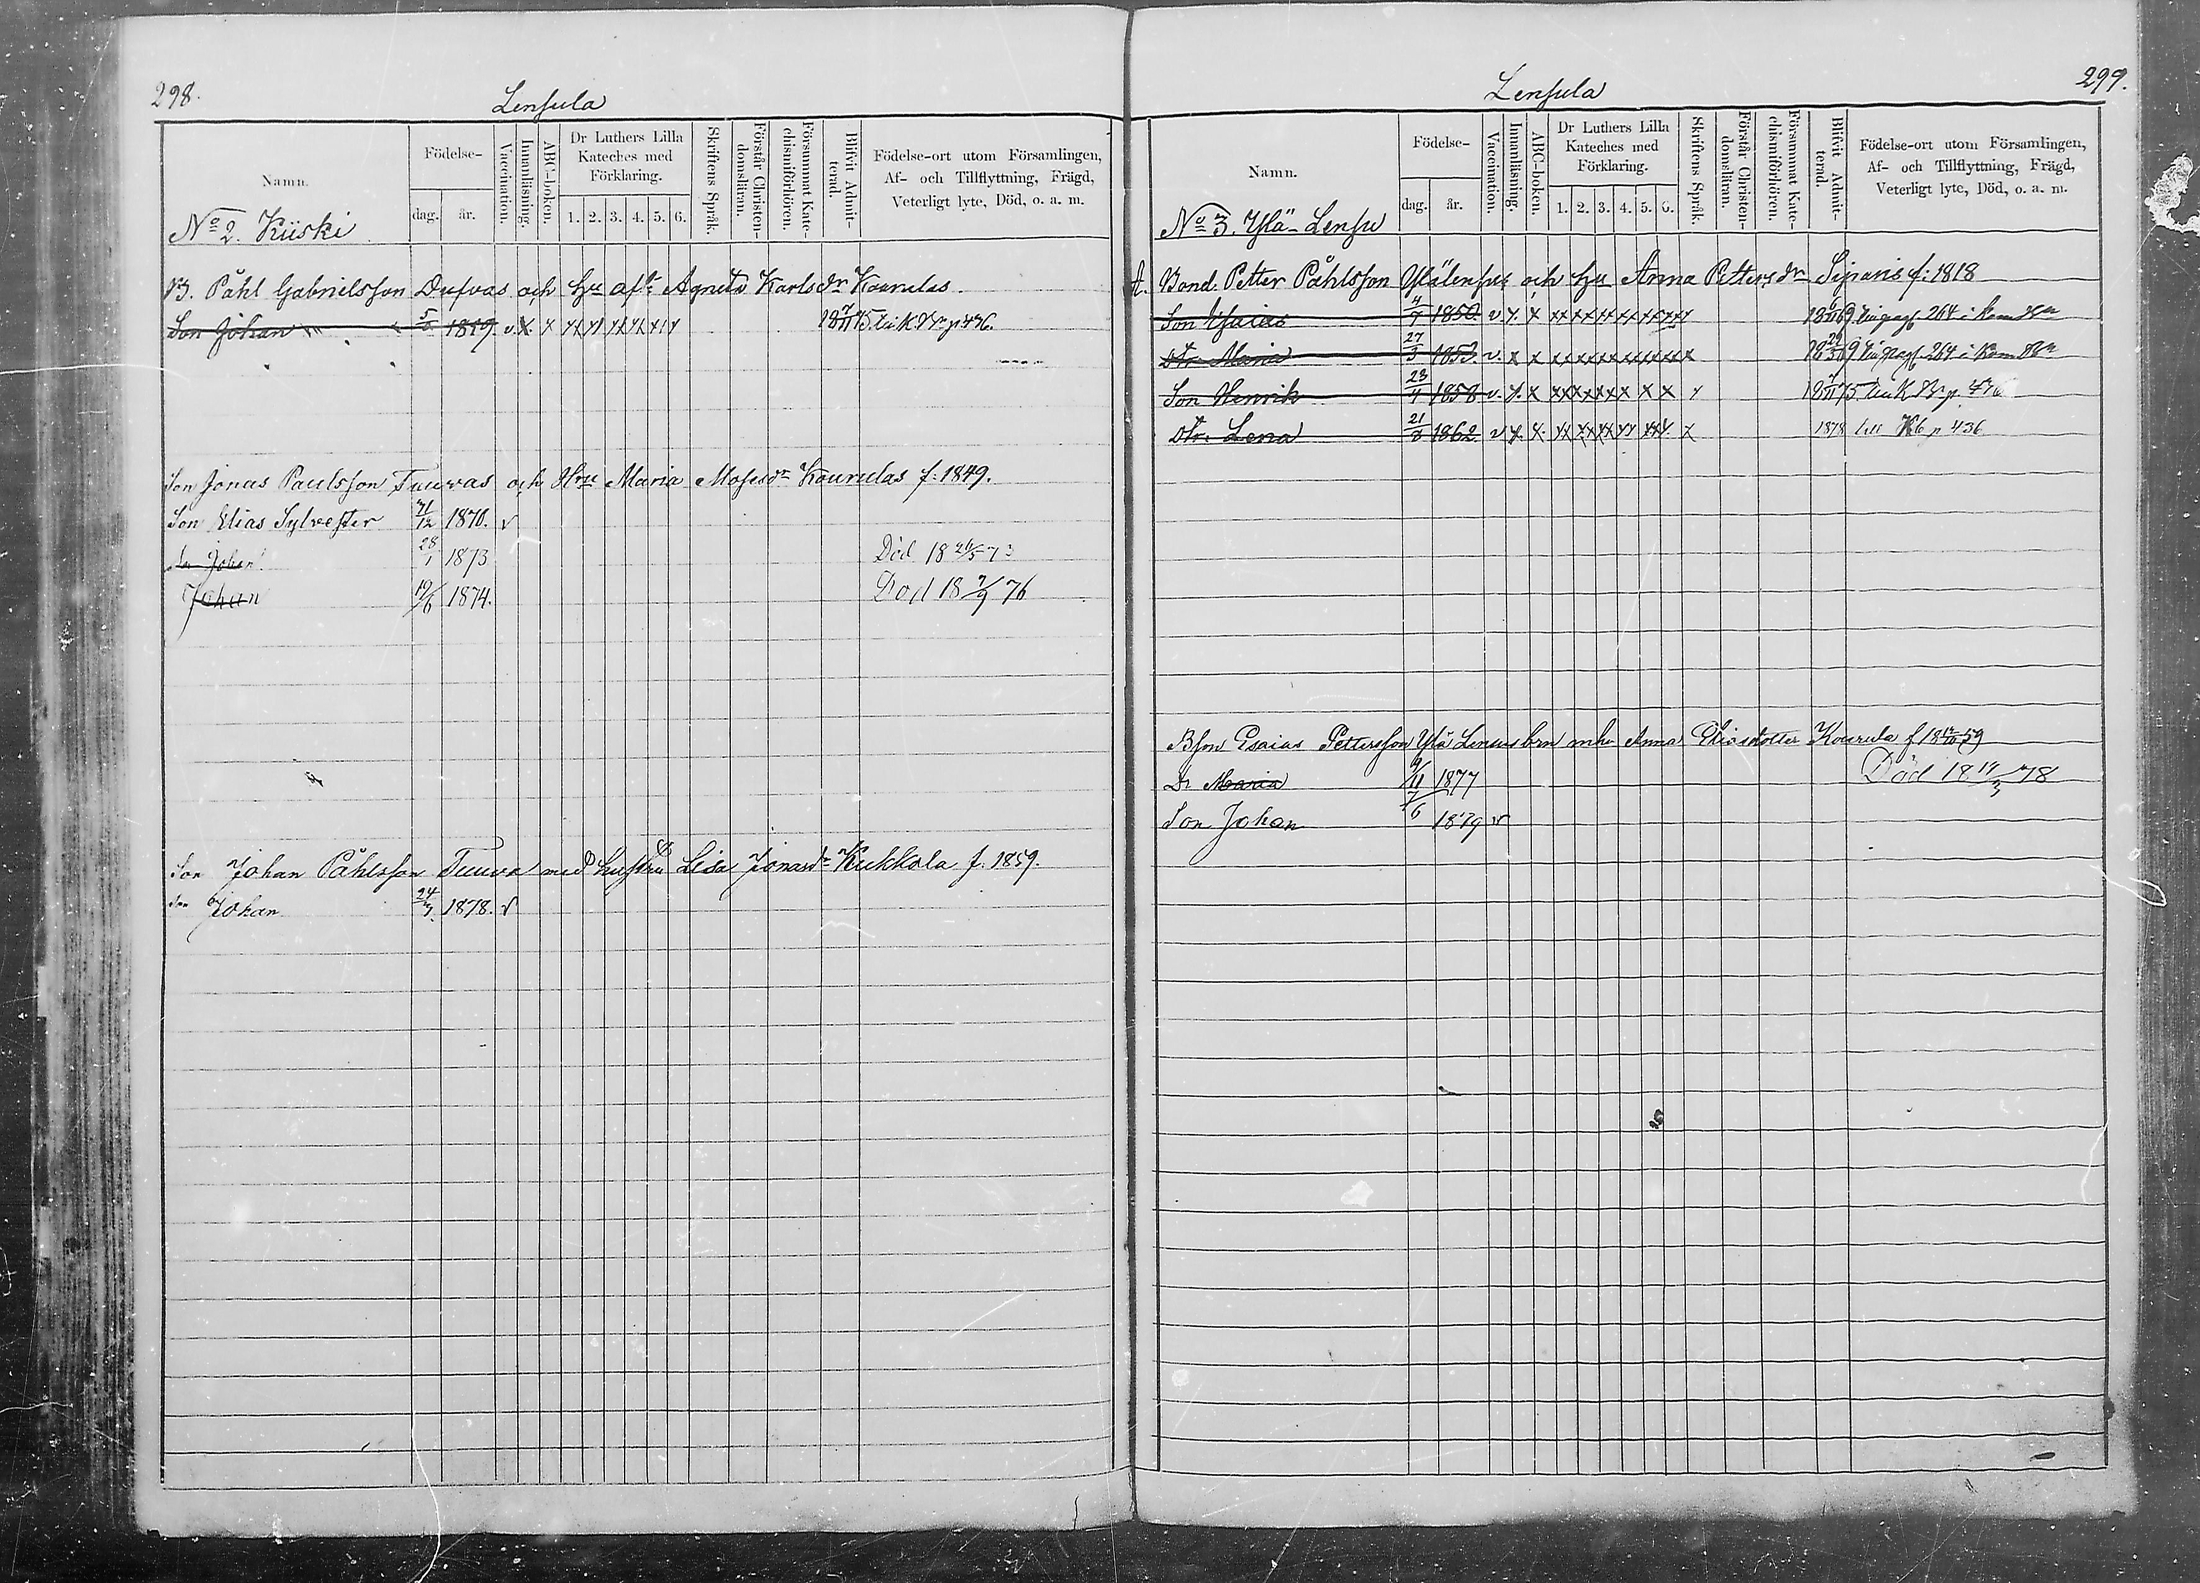 298.
Lensula
Namn.
Födelse-
dag.
år.
Vaccination.
Innanläsning.
ABC-boken.
Dr Luthers Lilla
Kateches med
Förklaring.
1. 2. 3. 4. 5. 6.
Skriftens Språk.
Förstår Christen-
domsläran.
Försummat Kate-
chismiförhören.
Blifvit Admit-
terad.
Födelse-ort utom Församlingen,
Af- och Tillflyttning, Frägd,
Veterligt lyte, Död, o. a. m.
No 2. Kiiski
B. Påhl Gabrielsson Dufvas och hu Agneta Karlsdr Kourulas
Son Johan 1859 v. x x xx xx xx xx 18 7/11 75 p 436.
Son Jonas Paulsson Tuuvas och Hru Maria Mosesdr Kourulas f: 1849.
Son Elias Sylvester 1870. v
Son Johan 28/1 1873 Död 18 26/5 73
Johan 19/6 1874. Död 18 7/9 76
Son Johan Påhlsson Tuuva med hustru Lisa Jonasdr Kukkola f. 1859.
Son Johan 24/7 1878. v
299.
Lensula
Namn.
Födelse-
dag.
år.
Vaccination.
Innanläsning.
ABC-boken.
Dr Luthers Lilla
Kateches med
Förklaring.
1. 2. 3. 4. 5. 6.
Skriftens Språk.
Förstår Christen-
domsläran.
Försummat Kate-
chismiförhören.
Blifvit Admit-
terad.
Födelse-ort utom Församlingen,
Af- och Tillflyttning, Frägd,
Veterligt lyte, Död, o. a. m.
No 3. Ylä-Lensu
A. Bond. Petter Påhlsson Ylälensu och hu Anna Pettersdr Siparis f: 1818
Son Esaias 4/7 1850 v. x. x xx xx xx xx xx xx x pag. 264 i Kom
dtr. Maria 27/3 1853. v. x x xx xx xx xx xx xx x pag. 264 i Kom
Son Henrik 23/4 1858 v. x. x xx xx xx xx x x x 18 7/11 75 p. 436
dtr. Lena 21/8 1862 v x. x. xx xx xx xx xx x x 1878 p 436
Bson Esaias Pettersson Ylä Lensu mhu Anna Eliasdotter Kourula f 59
Dr Maria 9/11 1877 Död 18 14/3 78
Son Johan 7/6 1879 v